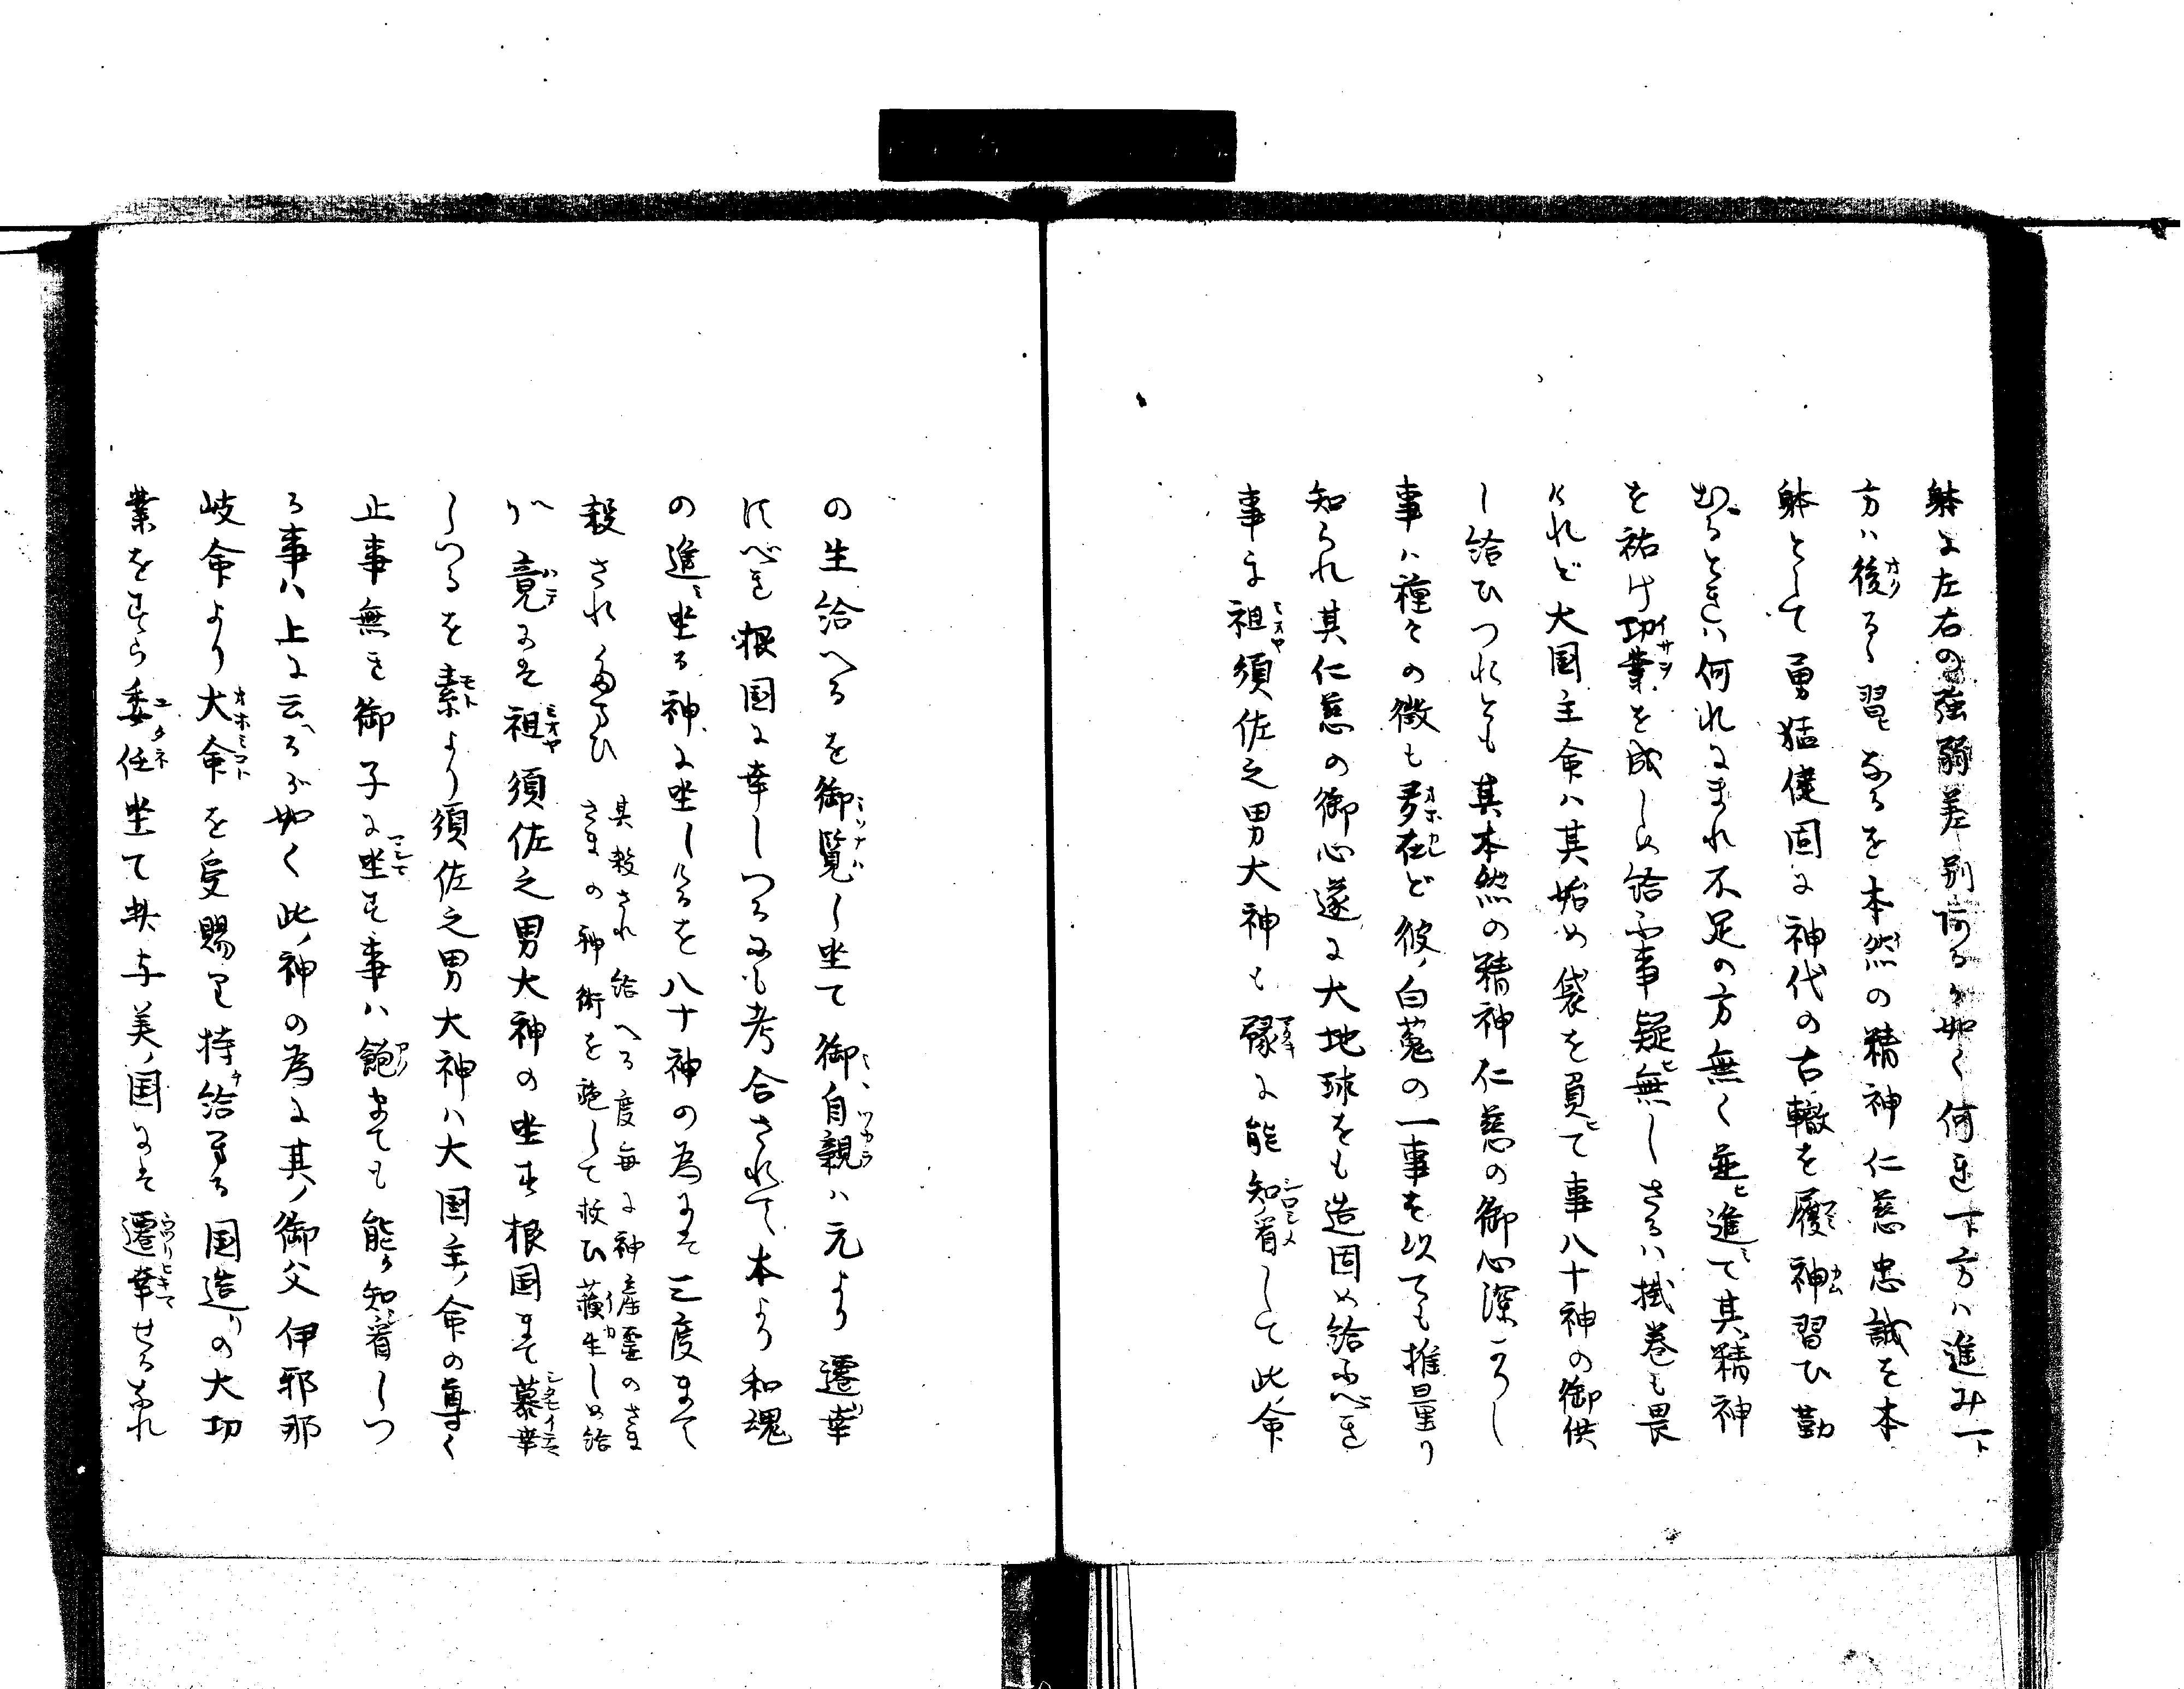 躰に左右の強弱差別有るが如く何連下方ハ進み一ト
方ハ後るゝ習なるを本然の精神仁慈忠誠を本
躰として勇猛健固に神代の古轍を履神習ひ勤
むるときハ何れにまれ不足の方無く並進て其精神
を祐け功業を成しめ給ふ事疑無しさるハ掛巻も畏
けれど大国主命ハ其始め袋を負て事八十神の御供
し給ひつれとも其本然の精神仁慈の御心深かりし
事ハ種々の徴も多在ど彼ノ白菟の一事を以ても推量り
知られ其仁慈の御心遂に大地球をも造固め給ふべき
事を祖須佐之男大神も豫に能知看して此ノ命
の生給へるを御覧し坐て御自親ハ元より遷幸
すべき根国に幸しつるにも考合されて本より和魂
の進坐る神に坐しけるを八十神の為にて三度まて
殺されたまひ
其殺され給へる度毎に神産霊のさま
さまの神術を施して救ひ蘇生しめ給
り竟にて祖須佐之男大神の坐す根国まて慕幸
しつるを素より須佐之男大神ハ大国主ノ命の尊く
止事無き御子に坐す事ハ飽まても能ク知看しつ
る事ハ上に云へるが如く此ノ神の為に其ノ御父伊邪那
岐命より大命を受賜り持給へる国造りの大功
業をすら委任坐て与美ノ国にて遷幸せるなれ